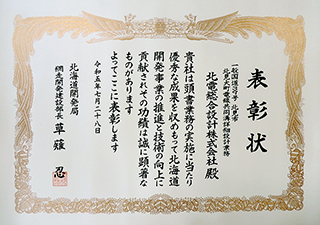 表彰状
一般国道39号 北見市
北見大町電線共同溝詳細設計業務
北電総合設計株式会社 殿
貴社は頭書業務の実施に当たり
優秀な成果を収めもって北海道
開発事業の推進と技術の向上に
貢献されその功績は誠に顕著な
ものがあります
よってここに表彰します
令和五年七月二十八日
北海道開発局
網走開発建設部長 草薙 忍